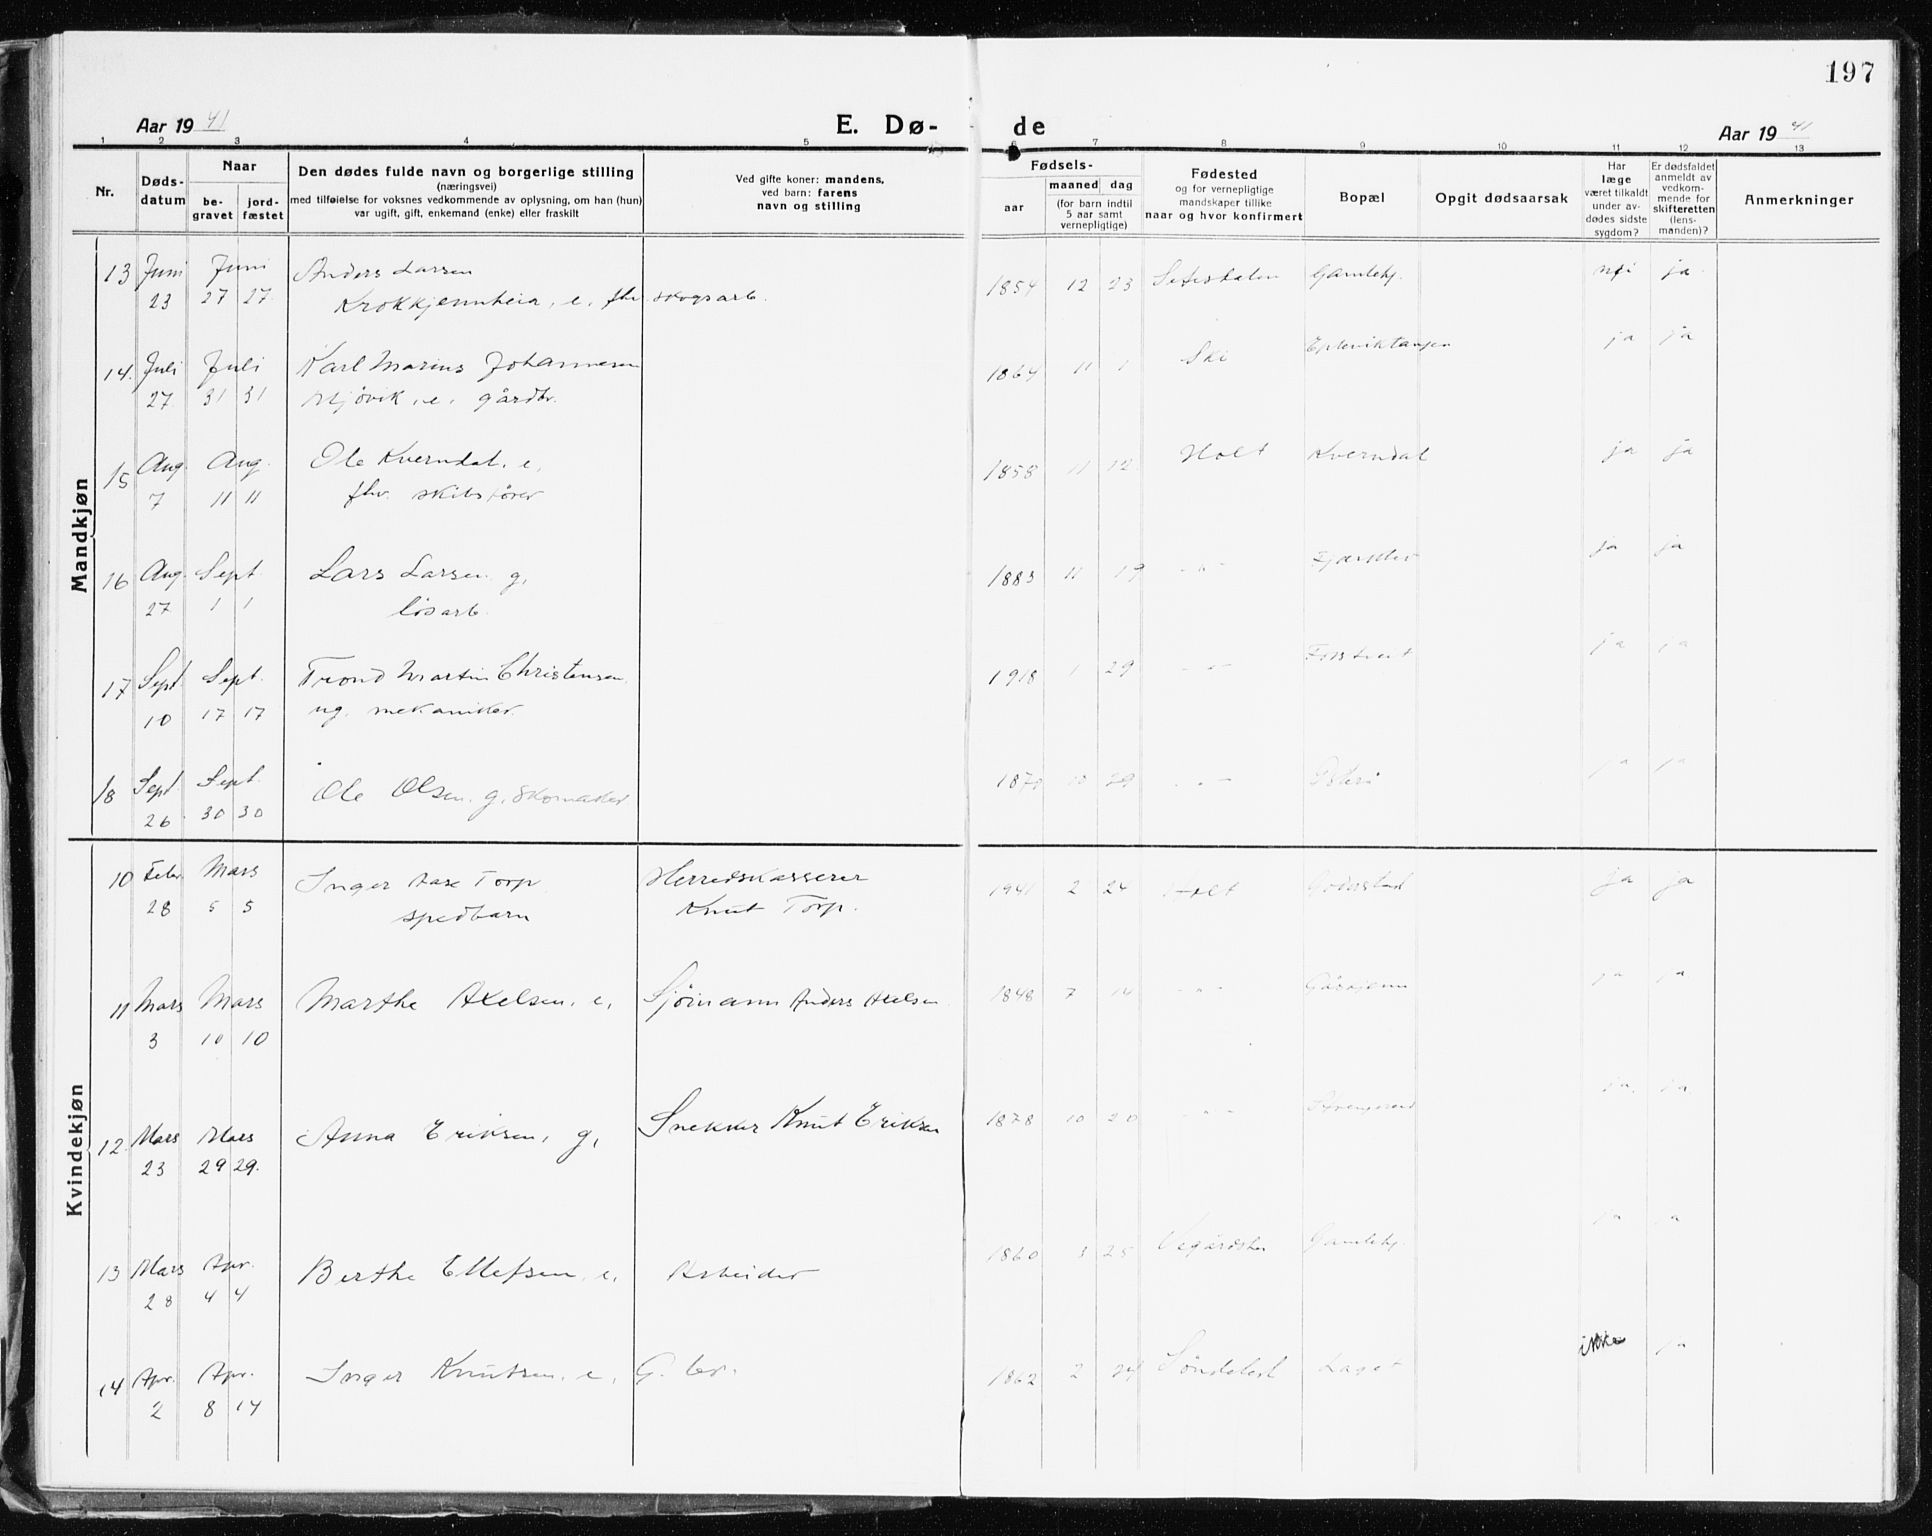 197
Aar 19 41
E. Dø-
de
Aar 19 41
1 2 3 4 5 6 7 8 9 10 11 12 13
Nr.
Døds-
datum
Naar
be-
gravet
jord-
fæstet
Den dødes fulde navn og borgerlige stilling
(næringsvei)
med tilføielse for voksnes vedkommende av oplysning, om han (hun)
var ugift, gift, enkemand (enke) eller fraskilt
Ved gifte koner: mandens,
ved barn: farens
navn og stilling
Fødsels-
aar
maaned dag
(for barn indtil
5 aar samt
vernepligtige)
Fødested
og for vernepligtige
mandskaper tillike
naar og hvor konfirmert
Bopæl
Opgit dødsaarsak
Har
læge
været tilkaldt
under av-
dødes sidste
sygdom?
Er dødsfaldet
anmeldt av
vedkom-
mende for
skifteretten
(lens-
manden)?
Anmerkninger
Mandkjøn
13 Juni Juni Anders Larsen 1854 12 23 Setesdalen Gamlekj. nei ja
23 27 27 Krokkjennheia, e. fhv skogsarb.
14. Juli Juli Karl Marius Johannesen 1864 11 1 Ski Epleviktangen ja ja
27 31 31 e. gårdbr.
15 Aug. Aug. Ole Kverndal, e, 1858 11 12 Holt Kverndal ja ja
7 11 11 fhv. skibsfører
16 Aug. Sept. Lars Larsen g, 1883 11 19 - " - ja ja
27 1 1 løsarb.
17 Sept Sept. Trond Martin Christensen, 1918 1 29 - " - ja ja
10 17 17 ug. mekaniker.
18 Sept. Sept. Ole Olsen, g, skomaker 10 29 - " - ja ja
26 30 30
Kvindekjøn
10 Febr. Mars Inger Aase Torp Herredskasserer 1941 2 24 Holt Goderstad ja ja
28 5 5 spedbarn Knut Torp.
11 Mars Mars Marthe Axelsen, e, Sjømann Anders Axelsen 1848 7 14 - " - ja ja
3 10 10
12. Mars Mars Anna Eriksen, g, Snekker Knut Eriksen 1878 10 20 - " - ja ja
23 29 29.
13 Mars Apr. Berthe Ellefsen, e, Arbeider 1860 3 25 Vegårdshei Gamlekj. ja ja
28 4 4
14 Apr. Apr. Inger Knutsen, e, G. br. 1862 2 24 Søndeled Laget ikke ja
2 8 14